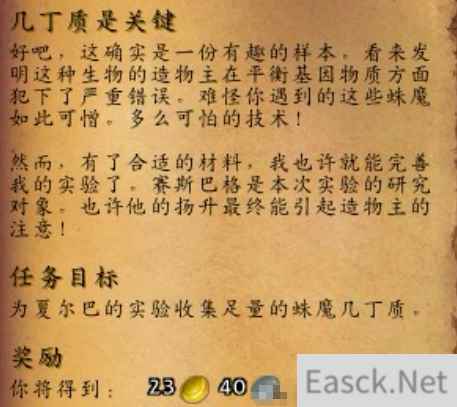 几丁质是关键
好吧，这确实是一份有趣的样本。看来发
明这种生物的造物主在平衡基因物质方面
犯下了严重错误。难怪你遇到的这些蛛魔
如此可憎。多么可怕的技术！
然而，有了合适的材料，我也许就能完善
我的实验了。赛斯巴格是本次实验的研究
对象。也许他的扬升最终能引起造物主的
注意！
任务目标
为夏尔巴的实验收集足量的蛛魔几丁质。
奖励
你将得到： 23 40
Easck.Net